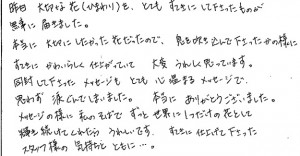 昨日 大切な花(ひまわり)を、とても すてきにして下さったものが
無事に届きました。
本当に 大切にしたかった花だったので、息を吹き込んで下さったかの様に
すてきに かわいらしく 仕上がっていて 大変 うれしく思っています。
同封して下さった メッセージも とても 心温まる メッセージで、
思わず 涙がでてしまいました。 本当に ありがとうございました。
メッセージの様に 私のそばで ずっと 世界に1つだけの花として
輝き続けてくれたら うれしいです。 すてきに 仕上げて下さった
スタッフ様の 気持ちと ともに…。